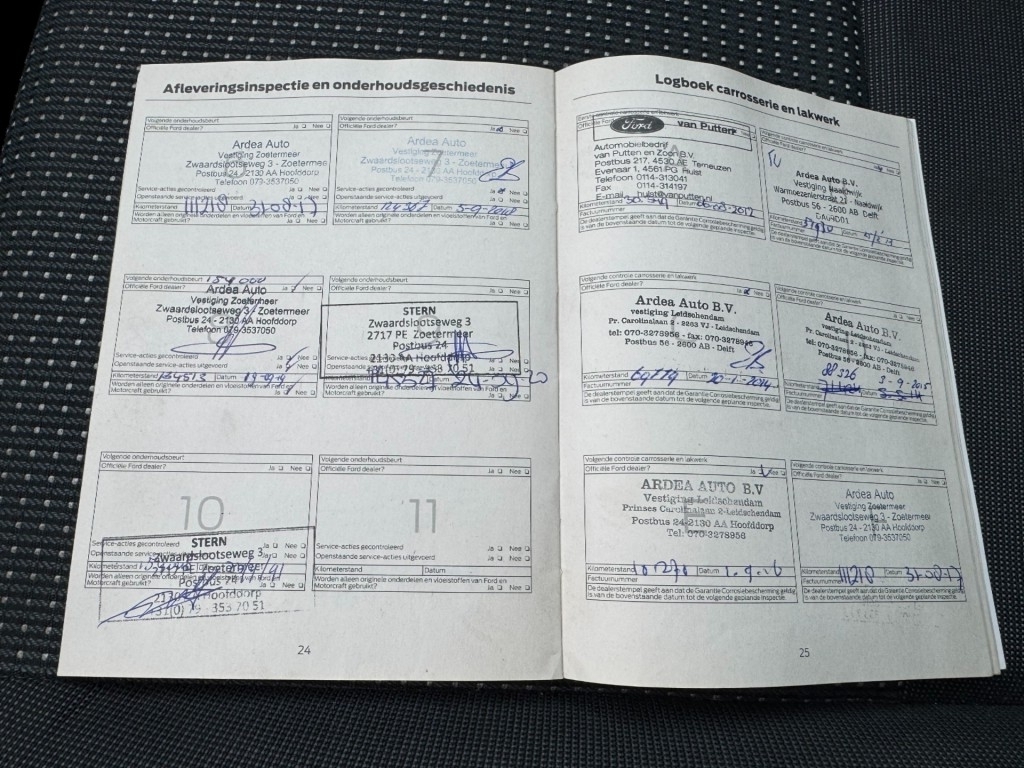 Afleveringsinspectie en onderhoudsgeschiedenis
Volgende onderhoudsbeurt
Officiële Ford dealer? Ja Nee
Ardea Auto
Vestiging Zoetermeer
Zwaardslootseweg 3 - Zoetermeer
Postbus 24 - 2130 AA Hoofddorp
Telefoon 079-3537050
Service-acties gecontroleerd Ja Nee
Openstaande service-acties uitgevoerd Ja Nee
Kilometerstand 111218 Datum 31-08-17
Worden alleen originele onderdelen en vloeistoffen van Ford en
Motorcraft gebruikt? Ja Nee
Volgende onderhoudsbeurt
Officiële Ford dealer? Ja Nee
7
Ardea Auto
Vestiging Zoetermeer
Zwaardslootseweg 3 - Zoetermeer
Postbus 24 - 2130 AA Hoofddorp
Telefoon 079-3537050
Service-acties gecontroleerd Ja Nee
Openstaande service-acties uitgevoerd Ja Nee
Kilometerstand Datum 5-9-2018
Worden alleen originele onderdelen en vloeistoffen van Ford en
Motorcraft gebruikt? Ja Nee
Volgende onderhoudsbeurt 154000
Officiële Ford dealer? Ja Nee
Ardea Auto
Vestiging Zoetermeer
Zwaardslootseweg 3 - Zoetermeer
Postbus 24 - 2130 AA Hoofddorp
Telefoon 079-3537050
Service-acties gecontroleerd Ja Nee
Openstaande service-acties uitgevoerd Ja Nee
Kilometerstand Datum
Worden alleen originele onderdelen en vloeistoffen van Ford en
Motorcraft gebruikt? Ja Nee
Volgende onderhoudsbeurt
Officiële Ford dealer? Ja Nee
STERN
Zwaardslootseweg 3
2717 PE Zoetermeer
Postbus 24
2130 AA Hoofddorp
31(0)79 - 353 70 51
Worden alleen originele onderdelen en vloeistoffen van Ford en
Motorcraft gebruikt? Ja Nee
Volgende onderhoudsbeurt
Officiële Ford dealer? Ja Nee
10
Service-acties gecontroleerd Ja Nee
STERN
Zwaardslootseweg 3
Postbus 24
2130 AA Hoofddorp
31(0)79 - 353 70 51
Motorcraft gebruikt?
Volgende onderhoudsbeurt
Officiële Ford dealer? Ja Nee
11
Service-acties gecontroleerd Ja Nee
Openstaande service-acties uitgevoerd Ja Nee
Kilometerstand Datum
Worden alleen originele onderdelen en vloeistoffen van Ford en
Motorcraft gebruikt? Ja Nee
24
Logboek carrosserie en lakwerk
Ford van Putten
Automobielbedrijf
van Putten en Zoon B.V.
Postbus 217, 4530 AE Terneuzen
Evenaar 1, 4561 PG Hulst
Telefoon 0114-313041
Fax 0114-314197
E-mail hulst@vanputten.nl
Kilometerstand Datum
Factuurnummer
De dealerstempel geeft aan dat de Garantie Corrosiebescherming geldig
is van de bovenstaande datum tot de volgende geplande inspectie.
Volgende controle carrosserie en lakwerk
Officiële Ford dealer? Ja Nee
Ardea Auto B.V.
Vestiging Naaldwijk
Warmoezenierstraat 23 - Naaldwijk
Postbus 56 - 2600 AB Delft
Kilometerstand Datum
Factuurnummer
De dealerstempel geeft aan dat de Garantie Corrosiebescherming geldig
is van de bovenstaande datum tot de volgende geplande inspectie.
Volgende controle carrosserie en lakwerk
Officiële Ford dealer? Ja Nee
Ardea Auto B.V.
vestiging Leidschendam
Pr. Carolinalaan 2 - 2263 VJ - Leidschendam
tel: 070-3278956 - fax: 070-3278946
Postbus 56 - 2600 AB - Delft
Kilometerstand Datum 20-1-2014
Factuurnummer
De dealerstempel geeft aan dat de Garantie Corrosiebescherming geldig
is van de bovenstaande datum tot de volgende geplande inspectie.
Volgende controle carrosserie en lakwerk
Officiële Ford dealer? Ja Nee
Ardea Auto B.V.
vestiging Leidschendam
Pr. Carolinalaan 2 - 2263 VJ - Leidschendam
tel: 070-3278956 - fax: 070-3278946
Postbus 56 - 2600 AB - Delft
88326 3-9-2015
Kilometerstand
Factuurnummer
De dealerstempel geeft aan dat de Garantie Corrosiebescherming geldig
is van de bovenstaande datum tot de volgende geplande inspectie.
Volgende controle carrosserie en lakwerk
Officiële Ford dealer? Ja Nee
ARDEA AUTO B.V
Vestiging Leidschendam
Prinses Carolinalaan 2-Leidschendam
Postbus 24-2130 AA Hoofddorp
Tel: 070-3278956
Kilometerstand 101270 Datum 1-9-16
Factuurnummer
De dealerstempel geeft aan dat de Garantie Corrosiebescherming geldig
is van de bovenstaande datum tot de volgende geplande inspectie.
Volgende controle carrosserie en lakwerk
Officiële Ford dealer? Ja Nee
Ardea Auto
Vestiging Zoetermeer
Zwaardslootseweg 3 - Zoetermeer
Postbus 24 - 2130 AA Hoofddorp
Telefoon 079-3537050
Kilometerstand 111218 Datum 31-08-17
Factuurnummer
De dealerstempel geeft aan dat de Garantie Corrosiebescherming geldig
is van de bovenstaande datum tot de volgende geplande inspectie.
25